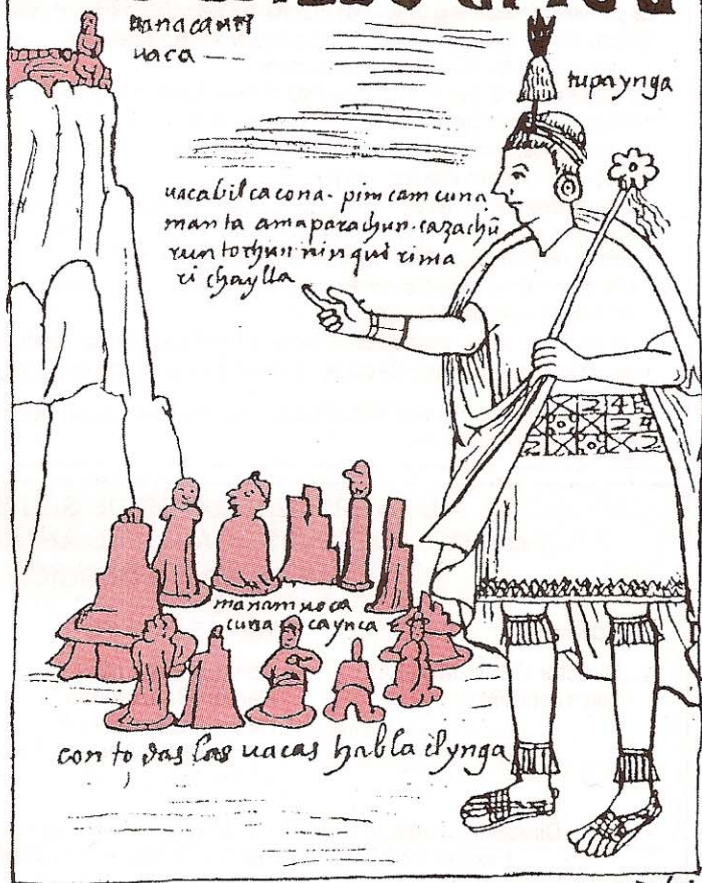 uanacauri
uaca
tupa ynga
uacabilcacona. pim camcuna
manta ama parachun. cazachū
runtochun nin qui rima
ri chaylla
manam uaca
cuna caynca
con todas las uacas habla el ynga